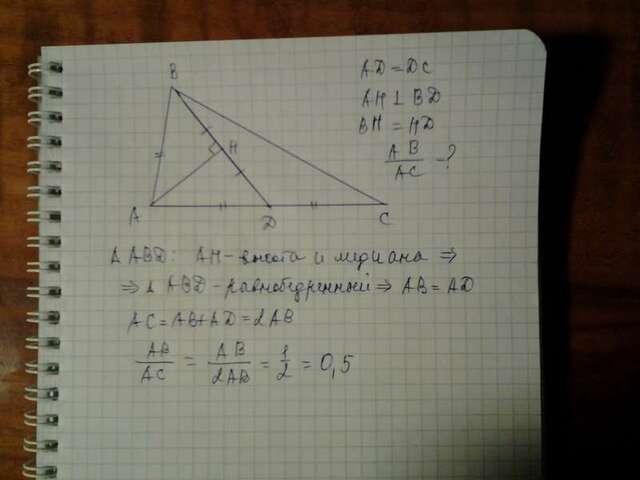 B
H
A
D
C
AD = DC
AH ⊥ BD
BH = HD
AB/AC - ?
Δ ABD: AH - высота и медиана ⇒
⇒ Δ ABD - равнобедренный ⇒ AB = AD
AC = AB + AD = 2AB
AB/AC = AB/2AB = 1/2 = 0,5